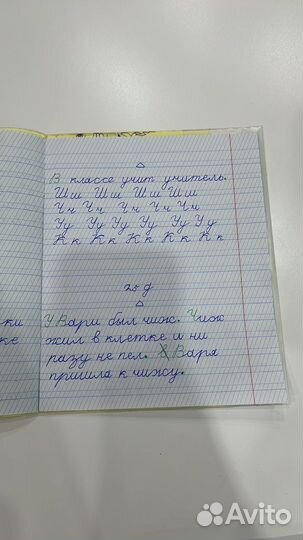 В классе учит учитель.
Шш Шш Шш Шш
Чч Чч Чч Чч Чч
Уу Уу Уу Уу Уу Уу
Кк Кк Кк Кк Кк
У Вари был чиж. Чиж
жил в клетке и ни
разу не пел. Варя
пришла к чижу.
ки
ке
Avito